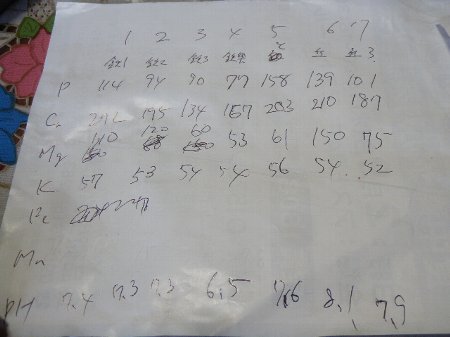 1 2 3 4 5 6 7
P 114 94 90 77 158 139 101
Ca 195 134 167 203 210 187
110 120 60
Mg 53 61 150 75
K 57 53 54 54 56 54 52
Fe
Mn
PH 7.4 7.3 7.3 6.5 7.6 8.1 7.9